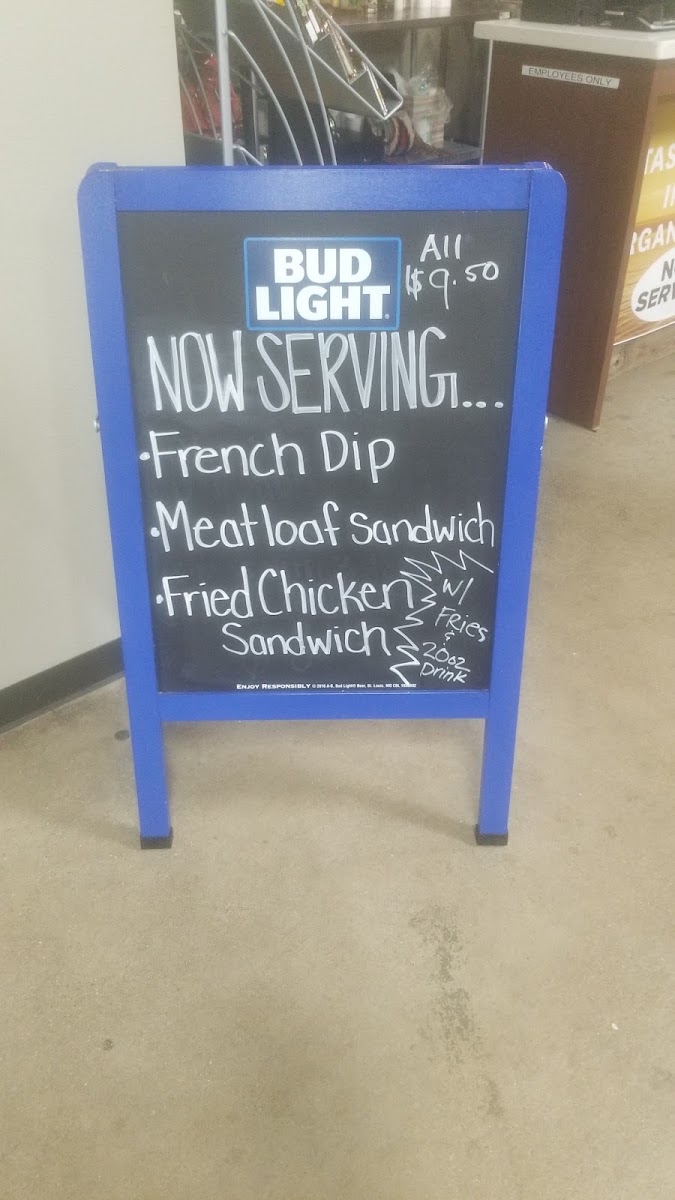 EMPLOYEES ONLY
TAS
I
RGAN
N
SERV
BUD
LIGHT
All
$9.50
NOW SERVING...
•French Dip
•Meatloaf Sandwich
•Fried Chicken
Sandwich
W/
FRies
&
20oz
Drink
ENJOY RESPONSIBLY © 2016 A-B, Bud Light® Beer, St. Louis, MO